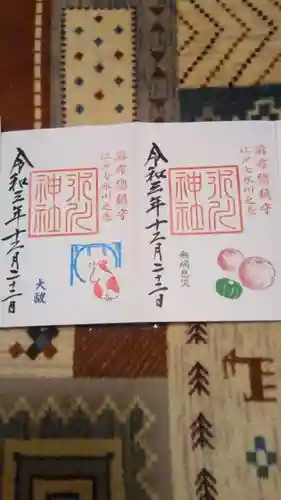 麻布總鎮守
江戸七氷川之
氷川
神社
無病息災
令和三年十二月二十二日
麻布總鎮守
江戸七氷川之
氷川
神社
大祓
令和三年十二月二十二日